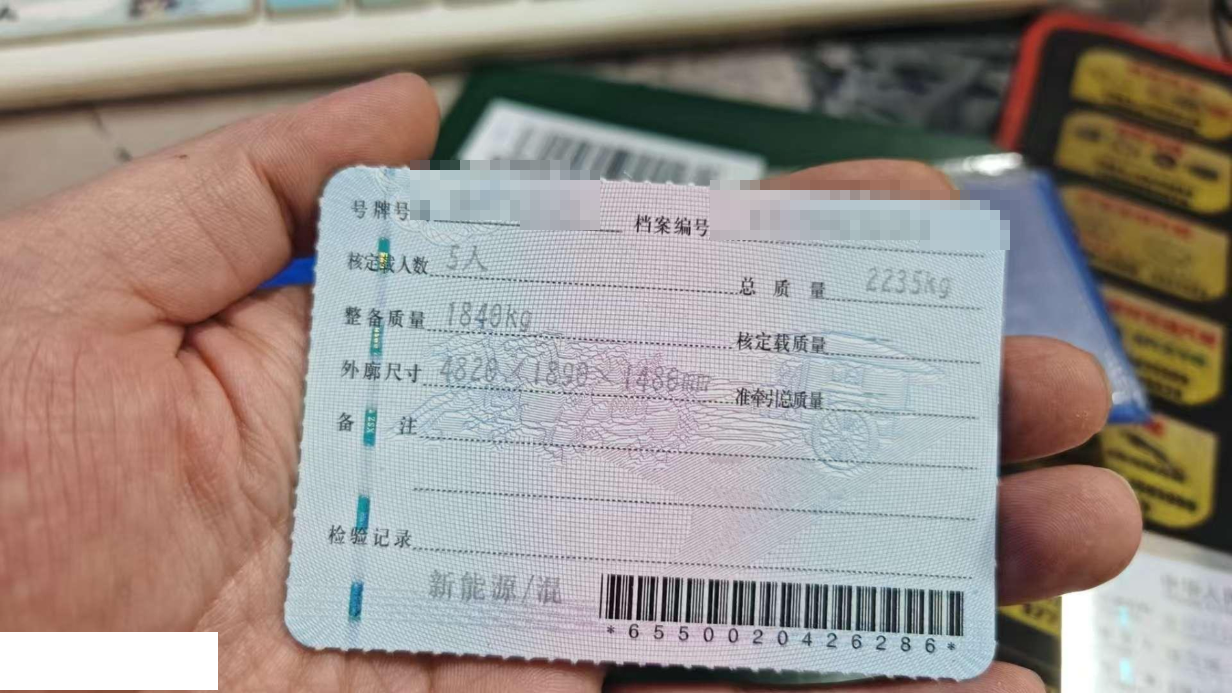 号牌号
档案编号
核定载人数 5人
总质量 2235kg
整备质量 1840kg
核定载质量
外廓尺寸 4820×1890×1480mm
准牵引总质量
备注
检验记录
新能源/混
*6550020426286*